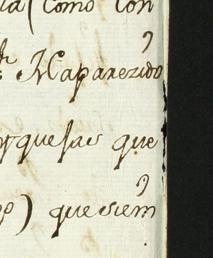 (como con
Haparezido
quelas que
quesiem